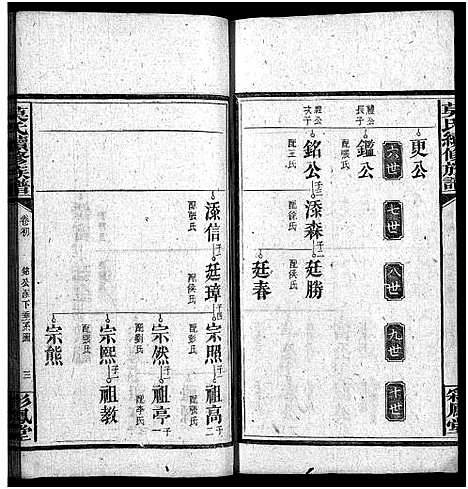 莫氏續修族譜
彩鳳堂
更公
六世
七世
八世
九世
十世
鑑公
長子
配張氏
銘公
次子
子二
配王氏
添森
子二
配徐氏
廷勝
廷春
莫氏續修族譜
卷初
銘公派下垂系圖
三
彩鳳堂
添信
子一
配張氏
廷璋
子四
配侯氏
宗照
子一
配彭氏
祖高
二
配張氏
宗然
子一
配劉氏
祖亭
一
配李氏
宗熙
子一
配張氏
祖教
宗熊